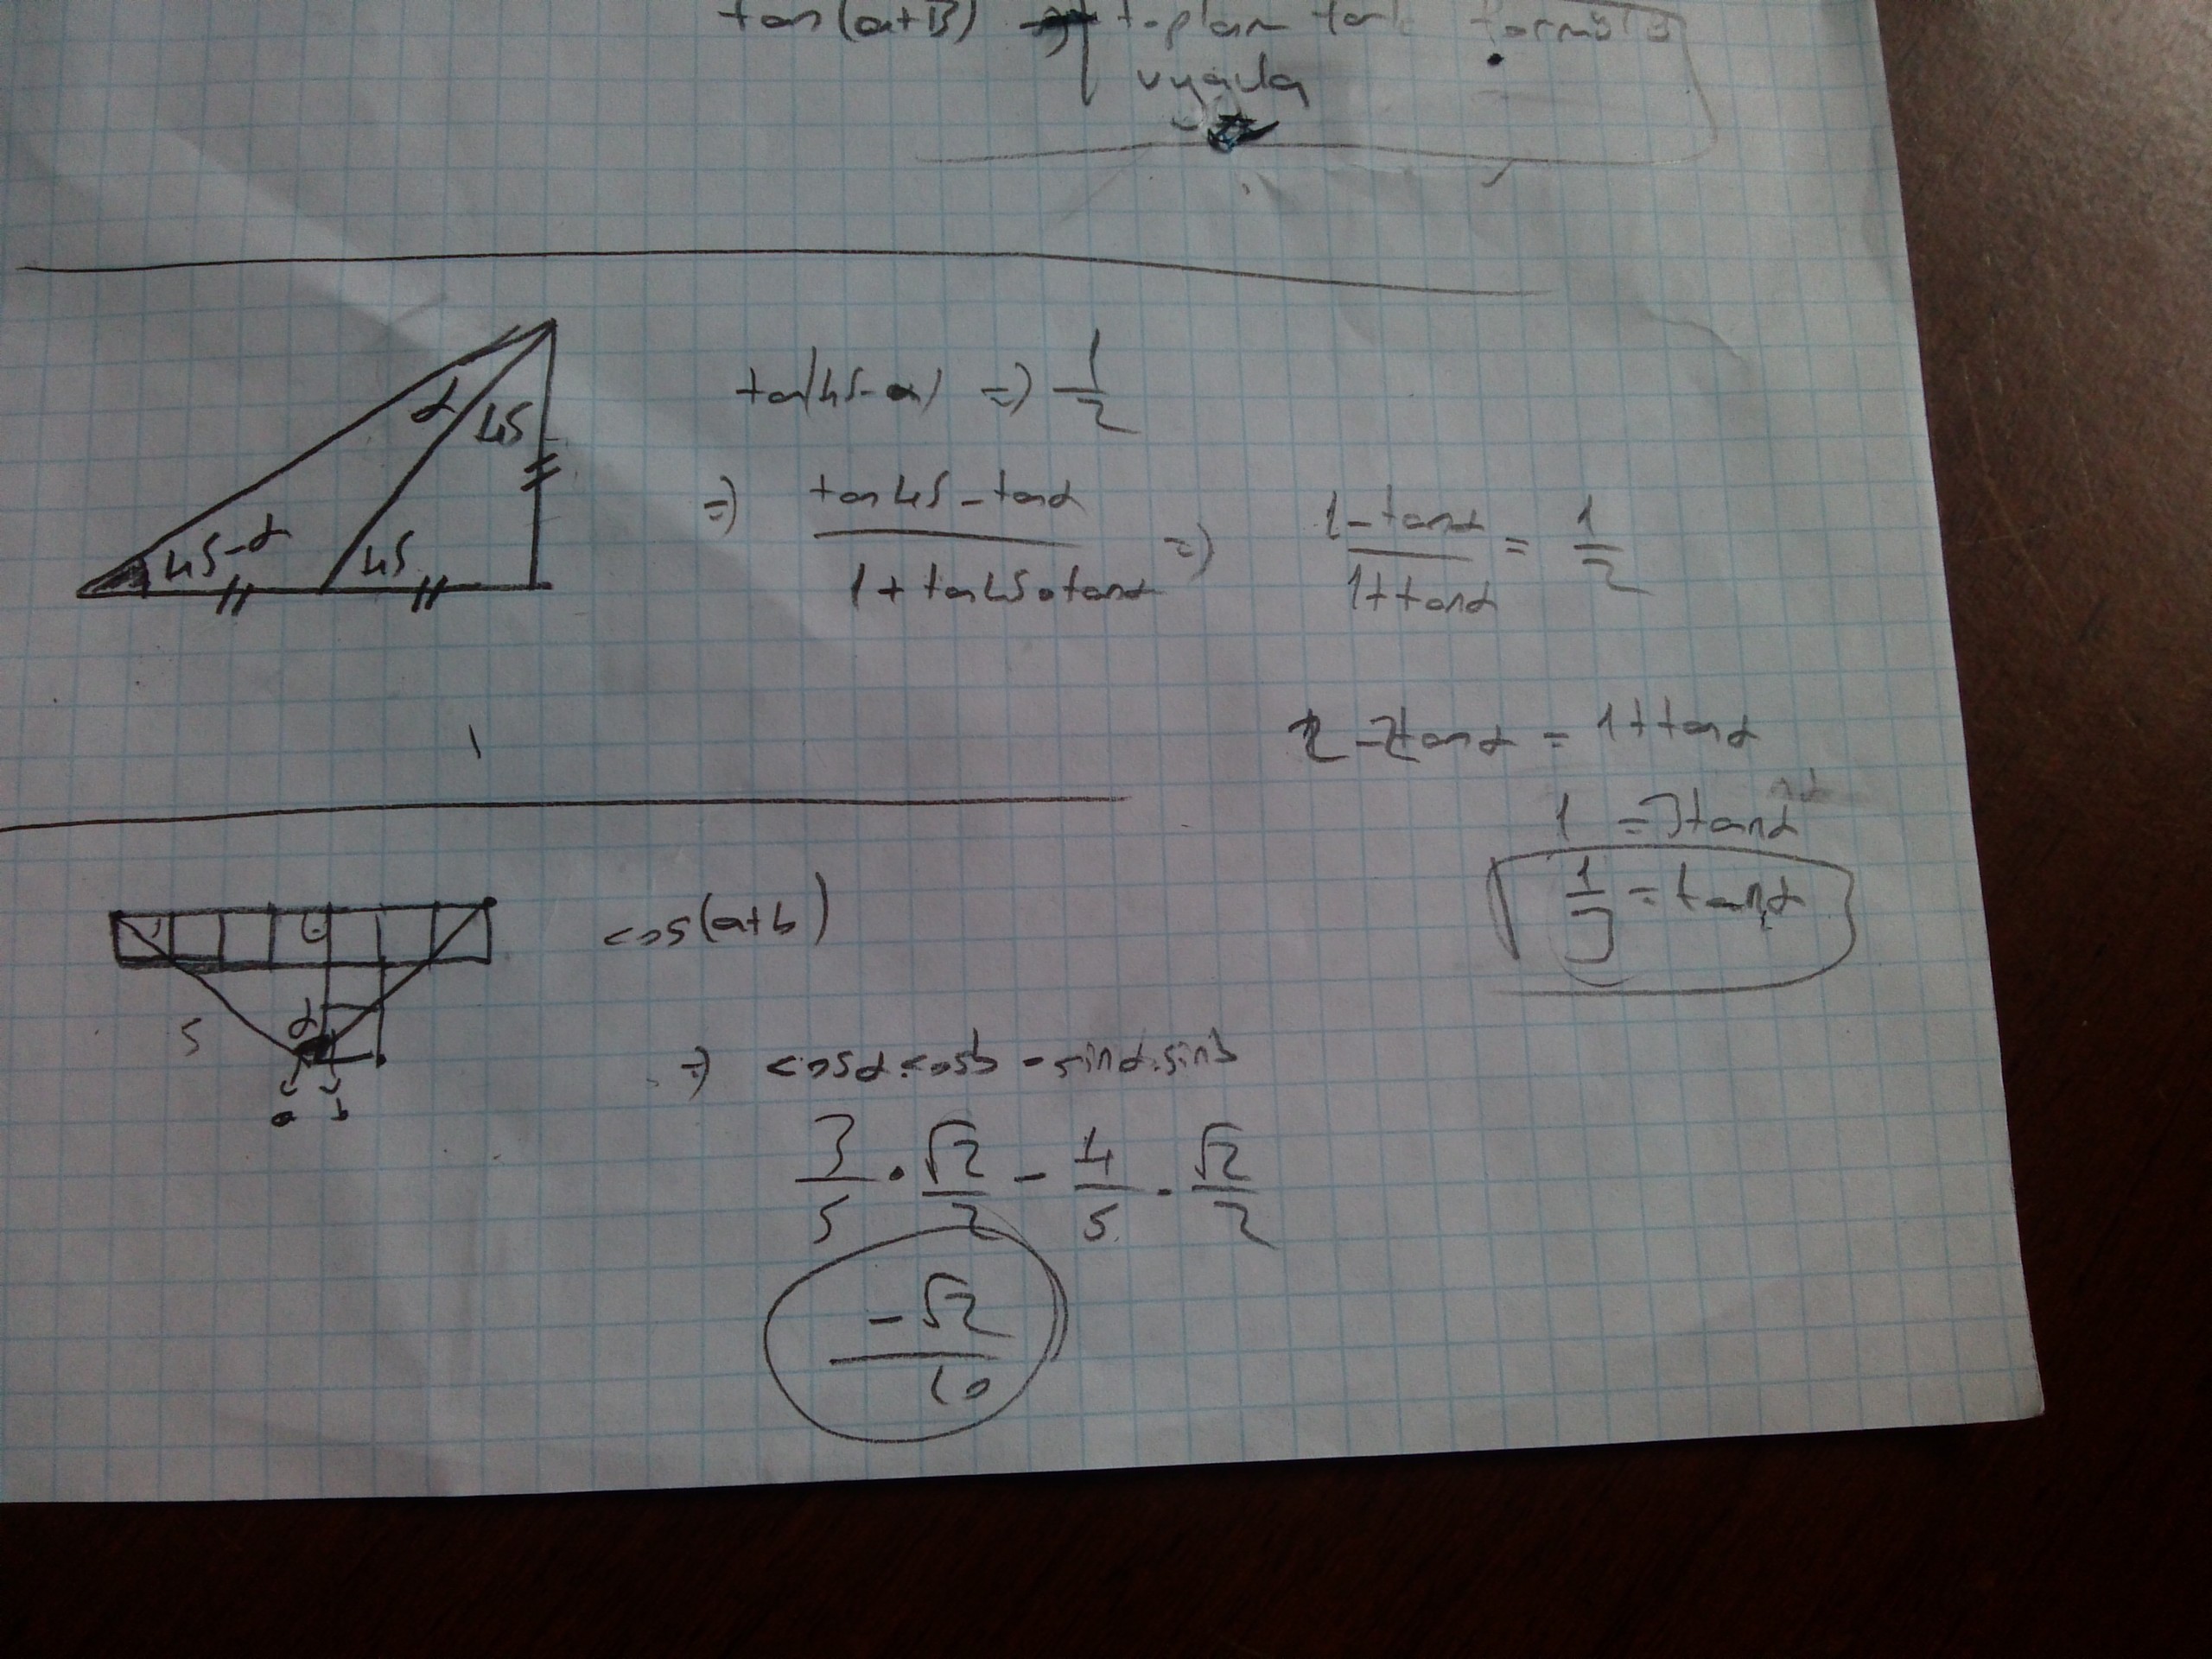 tan(a+B) => toplam fark formülü
uygula
α
45
45-α
45
tan(45-α) => 1/2
=> (tan45 - tanα)/(1 + tan45.tanα) => (1-tanα)/(1+tanα) = 1/2
2-2tanα = 1+tanα
1 = 3tanα
1/3 = tanα
cos(a+b)
5
α
a b
=> cosα.cosb - sinα.sinb
3/5 . √2/2 - 4/5 . √2/2
-√2/10